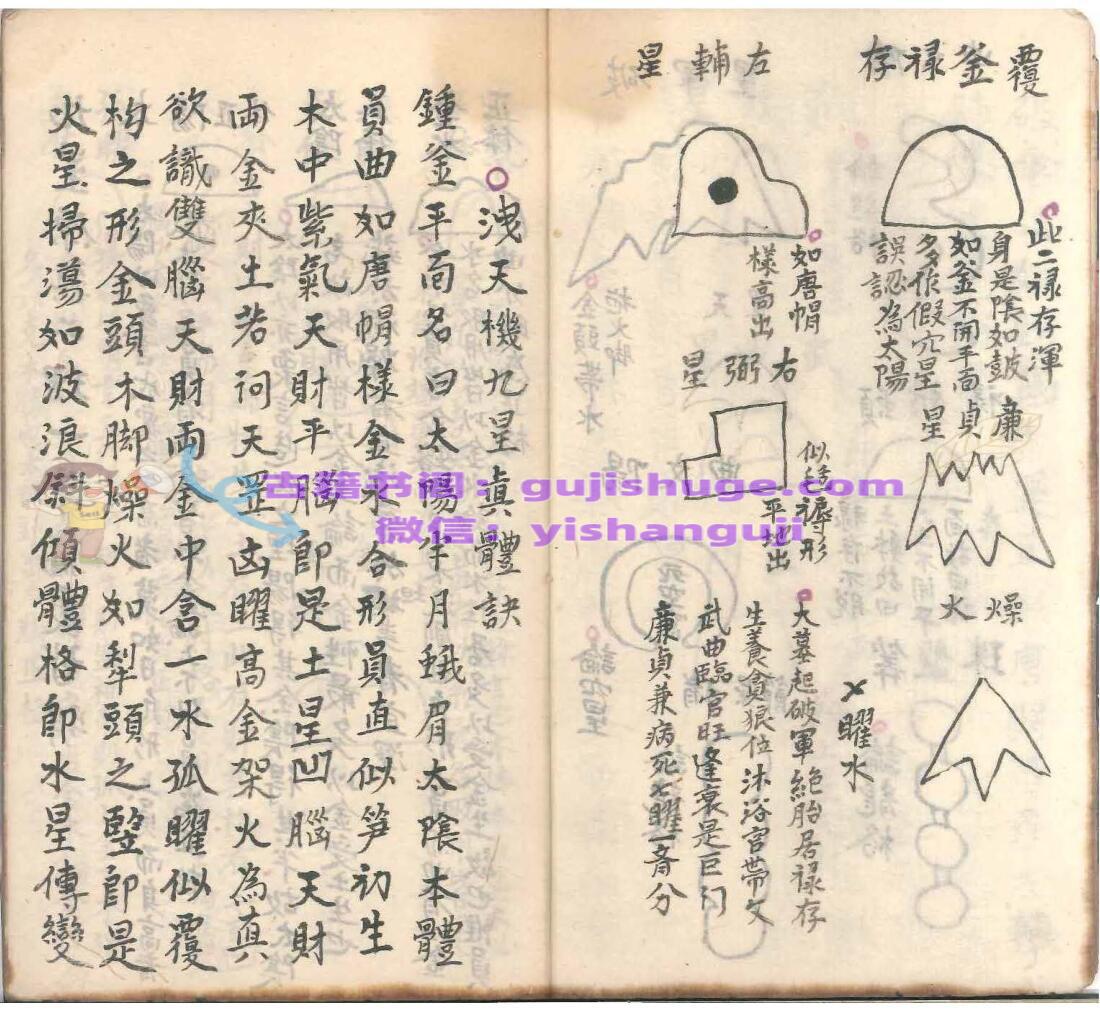 覆釜禄存
此二禄存渾
身是陰如皷
如釜不開平面
多作假穴星
誤認為太陽
廉
貞
星
燥火
左輔星
如唐帽
樣高出
右弼星
似毡褥形
平地出
×曜水
大墓起破軍絶胎居禄存
生養貪狼位沐浴宫帶文
武曲臨官旺逢衰是巨门
廉貞兼病死七曜一斉分
洩天機九星真體訣
鍾釜平面名曰太陽半月蛾眉太陰本體
員曲如唐帽樣金水合形員直似笋初生
木中紫氣天財平腦即是土星凹腦天財
兩金夾土若祠天罡凶曜高金架火為真
欲識雙腦天財兩金中含一水孤曜似覆
杓之形金頭木脚燥火如犁頭之竪即是
火星掃蕩如波浪斜傾體格即水星傳變
古籍书阁：gujishuge.com
微信：yishanguji